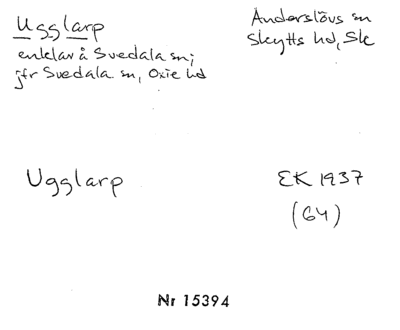 Ugglarp
enklav å Svedala sn;
jfr Svedala sn, Oxie hd
Anderslövs sn
Skytts hd, Sk
Ugglarp
EK 1937
(64)
Nr 15394